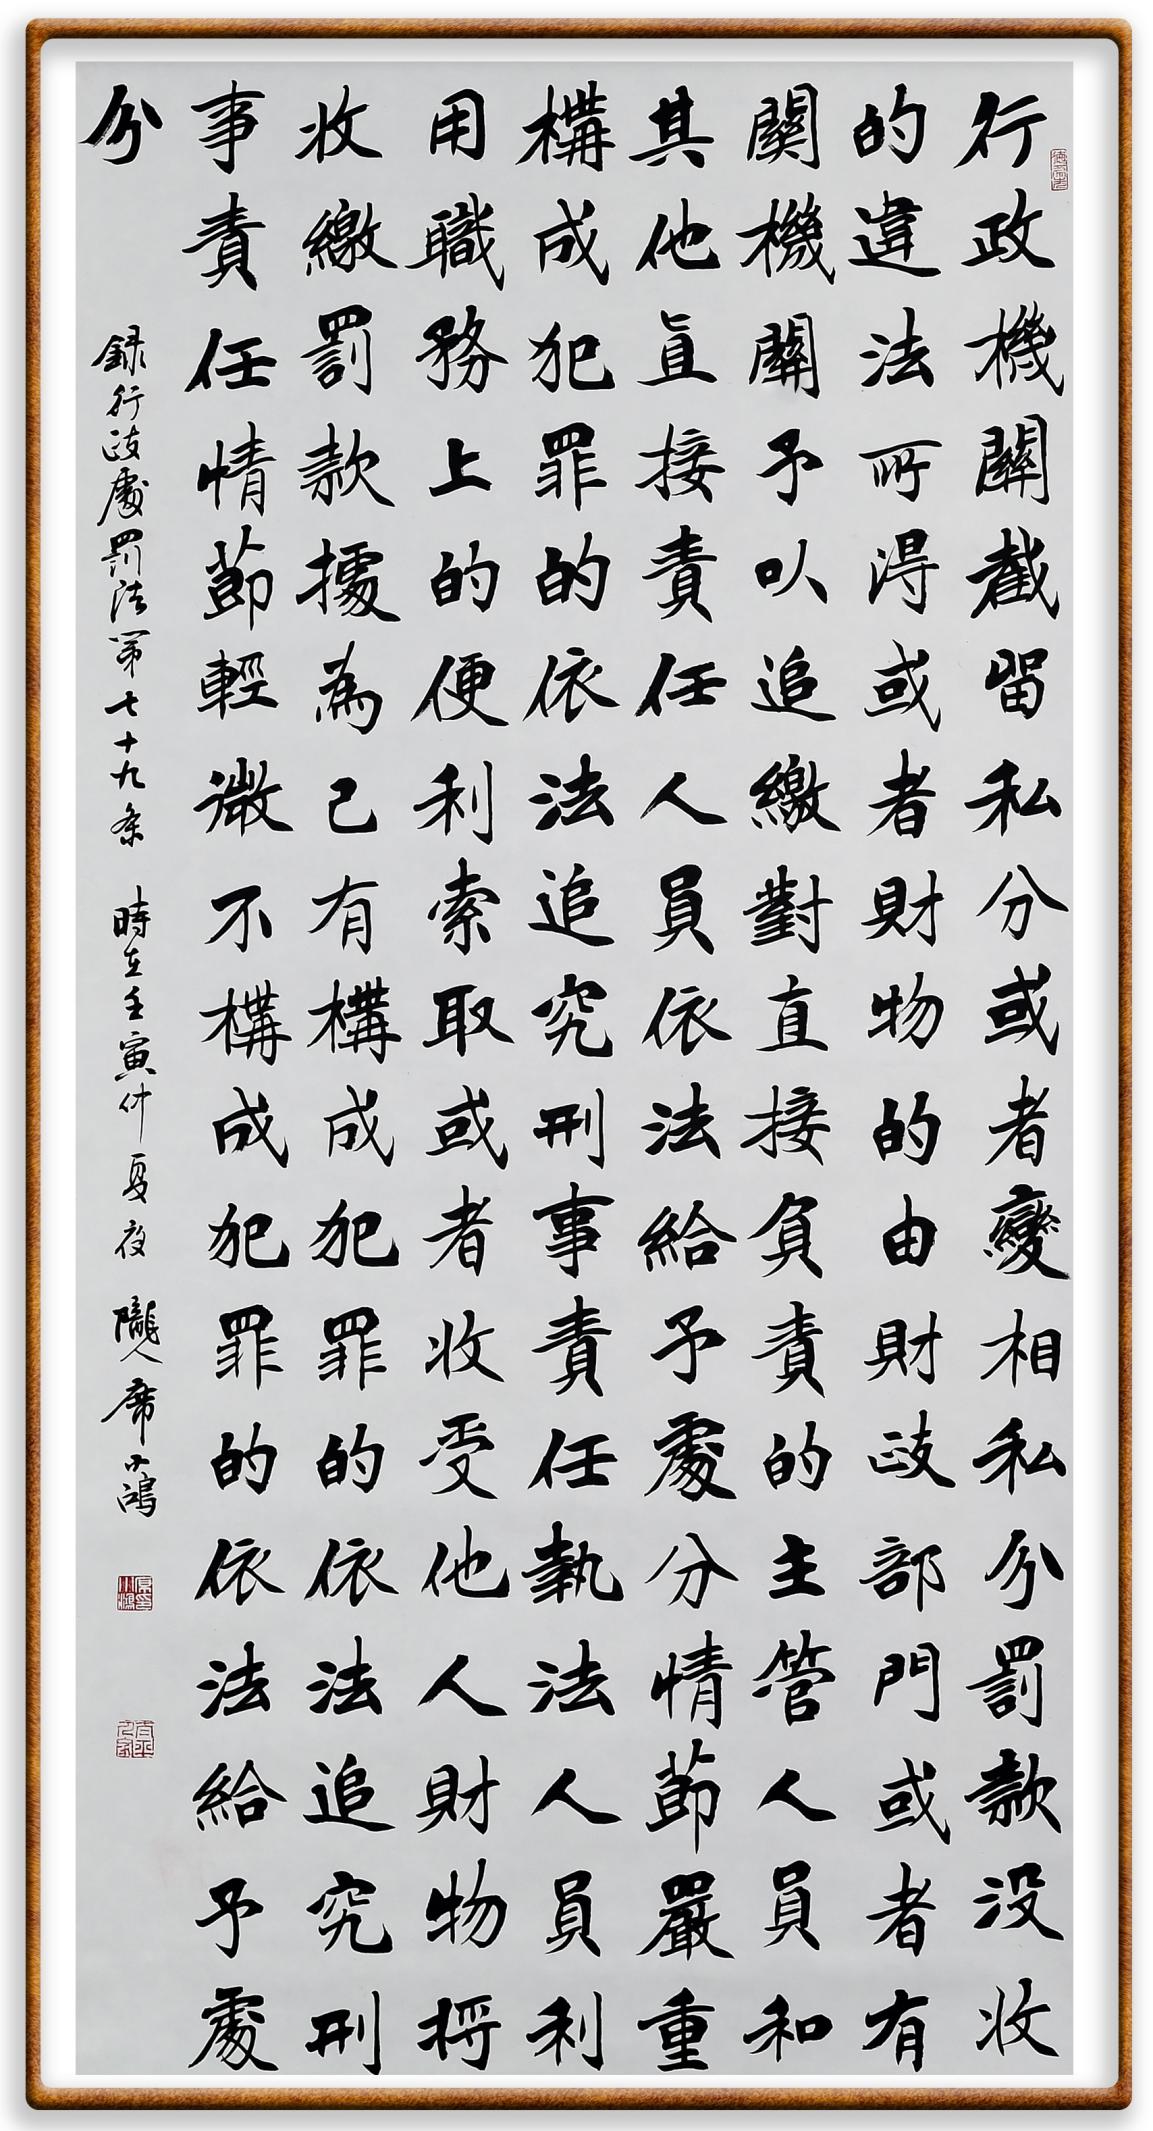 行政機關截留私分或者變相私分罰款没收
的違法所得或者財物的由財政部門或者有
關機關予以追繳對直接負責的主管人員和
其他直接責任人員依法給予處分情節嚴重
構成犯罪的依法追究刑事責任執法人員利
用職務上的便利索取或者收受他人財物将
收繳罰款據為己有構成犯罪的依法追究刑
事責任情節輕微不構成犯罪的依法給予處
分
録行政處罰法第七十九条 時在壬寅仲夏夜 隴人席小鴻